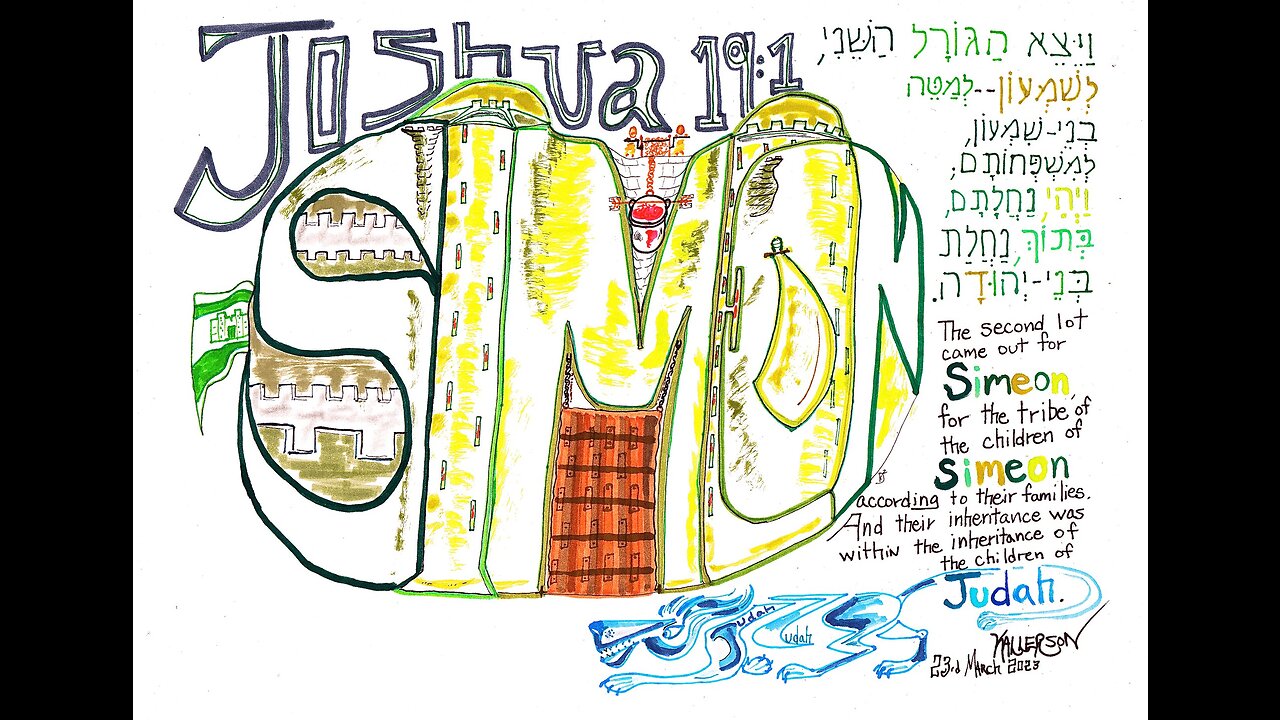 Joshua 19:1
וַיֵּצֵא הַגּוֹרָל הַשֵּׁנִי,
לְשִׁמְעוֹן--לְמַטֵּה
בְנֵי-שִׁמְעוֹן,
לְמִשְׁפְּחוֹתָם;
וַיְהִי, נַחֲלָתָם,
בְּתוֹךְ, נַחֲלַת
בְּנֵי-יְהוּדָה.
SIMEON
The second lot
came out for
Simeon,
for the tribe of
the children of
Simeon
according to their families.
And their inheritance was
within the inheritance of
the children of
Judah.
Judah
Judah
KALLERSON
23rd March 2023